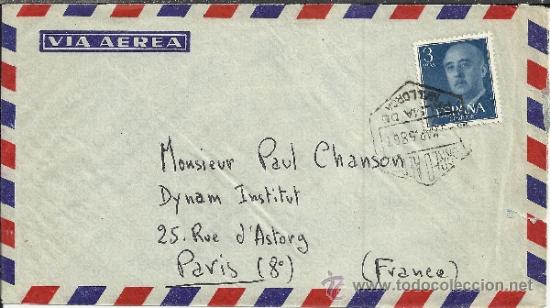 VIA AEREA
3
PTAS
ESPAÑA
CORREOS
Monsieur Paul Chanson
Dynam Institut
25. Rue d'Astorg
Paris (8º)
(France)
todocoleccion
todocoleccion.net